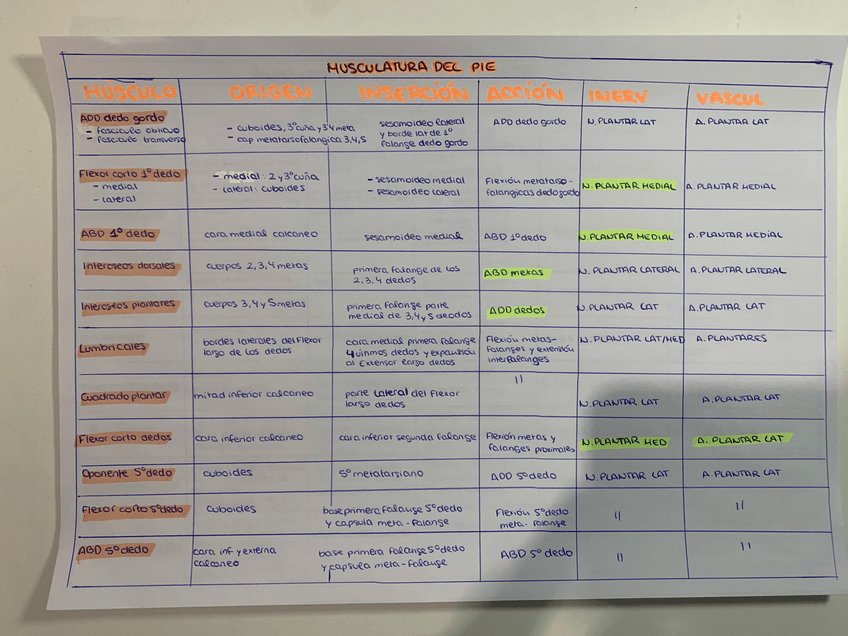 MUSCULATURA DEL PIE
MÚSCULO ORIGEN INSERCIÓN ACCIÓN INERV VASCUL
ADD dedo gordo
- fascículo oblicuo
- fascículo transverso
- cuboides, 3ºcuña y 3º4 meta
- cap metatarsofalangica 3,4,5
sesamoideo lateral
y borde lat de 1º
falange dedo gordo
ADD dedo gordo
N. PLANTAR LAT
A. PLANTAR LAT
Flexor corto 1º dedo
- medial
- lateral
- medial: 2 y 3º cuña
- lateral: cuboides
- sesamoideo medial
- sesamoideo lateral
Flexión metatarso-
falangicas dedo gordo
N. PLANTAR MEDIAL
A. PLANTAR MEDIAL
ABD 1º dedo
cara medial calcaneo
sesamoideo medial
ABD 1º dedo
N. PLANTAR MEDIAL
A. PLANTAR MEDIAL
Interoseos dorsales
cuerpos 2,3,4 metas
primera falange de los
2,3,4 dedos
ABD metas
N. PLANTAR LATERAL
A. PLANTAR LATERAL
Interoseos plantares
cuerpos 3,4 y 5 metas
primera falange parte
medial de 3,4 y 5 deodos
ADD dedos
N. PLANTAR LAT
A. PLANTAR LAT
Lumbricales
bordes laterales del Flexor
largo de los dedos
cara medial primera falange
4 últimos dedos y expansión
al Extensor largo dedos
Flexión metas-
falanges y extensión
interfalanges
N. PLANTAR LAT/MED
A. PLANTARES
Cuadrado plantar
mitad inferior calcaneo
parte lateral del Flexor
largo dedos
"
N. PLANTAR LAT
A. PLANTAR LAT
Flexor corto dedos
cara inferior calcaneo
cara inferior segunda falange
Flexión metas y
falanges proximales
N. PLANTAR MED
A. PLANTAR LAT
Oponente 5º dedo
cuboides
5º metatarsiano
ADD 5º dedo
N. PLANTAR LAT
A. PLANTAR LAT
Flexor corto 5º dedo
cuboides
base primera falange 5º dedo
y capsula meta-falange
Flexión 5º dedo
meta-falange
"
"
ABD 5º dedo
cara inf y externa
calcaneo
base primera falange 5º dedo
y capsula meta-falange
ABD 5º dedo
"
"